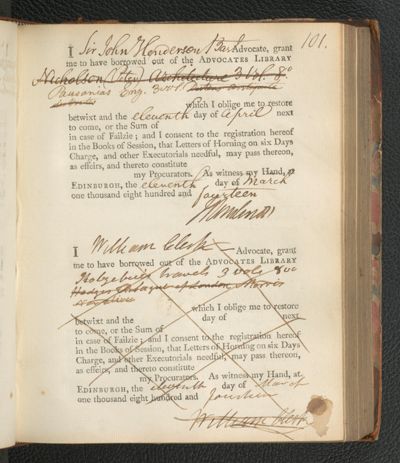 101.
I Sir John Henderson Bart Advocate, grant
me to have borrowed out of the ADVOCATES LIBRARY
Nicholson (Peter) Architecture 3 Vol. 8o
Pausanias Eng. 3 vol
which I oblige me to restore
betwixt and the eleventh day of April next
to come, or the Sum of
in case of Failzie; and I consent to the registration hereof
in the Books of Session, that Letters of Horning on six Days
Charge, and other Executorials needful, may pass thereon,
as effeirs, and thereto constitute
my Procurators. As witness my Hand, at
EDINBURGH, the eleventh day of March
one thousand eight hundred and fourteen
I William Clerk Advocate, grant
me to have borrowed out of the ADVOCATES LIBRARY
travels 3 vols 8vo
of London Morris
which I oblige me to restore
betwixt and the day of next
to come, or the Sum of
in case of Failzie; and I consent to the registration hereof
in the Books of Session, that Letters of Horning on six Days
Charge, and other Executorials needful, may pass thereon,
as effeirs, and thereto constitute
my Procurators. As witness my Hand, at
EDINBURGH, the eleventh day of March
one thousand eight hundred and fourteen
William Clerk